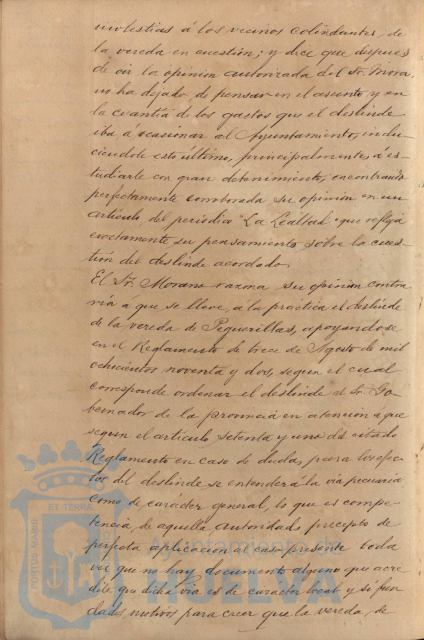 molestias á los vecinos colindantes, de
la vereda en cuestión; y dice que despues
de oir la opinión autorizada del Sr. Mora,
no ha dejado de pensar en el asunto y en
la cuantía de los gastos que el deslinde
iba á ocasionar al Ayuntamiento, indu-
ciendole esto último, principalmente, á es-
tudiarle con gran detenimiento, encontrando
perfectamente corroborada su opinión en un
artículo del periodico "La Lealtad" que refleja
exactamente su pensamiento sobre la cues-
tión del deslinde acordado.
El Sr. Morano razona su opinión contra
ria a que se lleve, a la práctica el deslinde
de la vereda de Peguerillas, apoyandose
en el Reglamento de trece de Agosto de mil
ochocientos noventa y dos, segun el cual
corresponde ordenar el deslinde al Sr. Go-
bernador de la provincia en atención a que
segun el artículo setenta y uno del citado
Reglamento en caso de duda, para los efec-
tos del deslinde se entenderá la via pecuaria
como de carácter general, lo que es compe-
tencia de aquella autoridad, precepto de
perfecta aplicacion al caso presente toda
vez que no hay documento alguno que acre-
dite que dicha via es de carácter local y si fun
dados motivos para creer que la vereda, de
PORTUS MARIS
ET TERRÆ
Ayuntamiento de
HUELVA